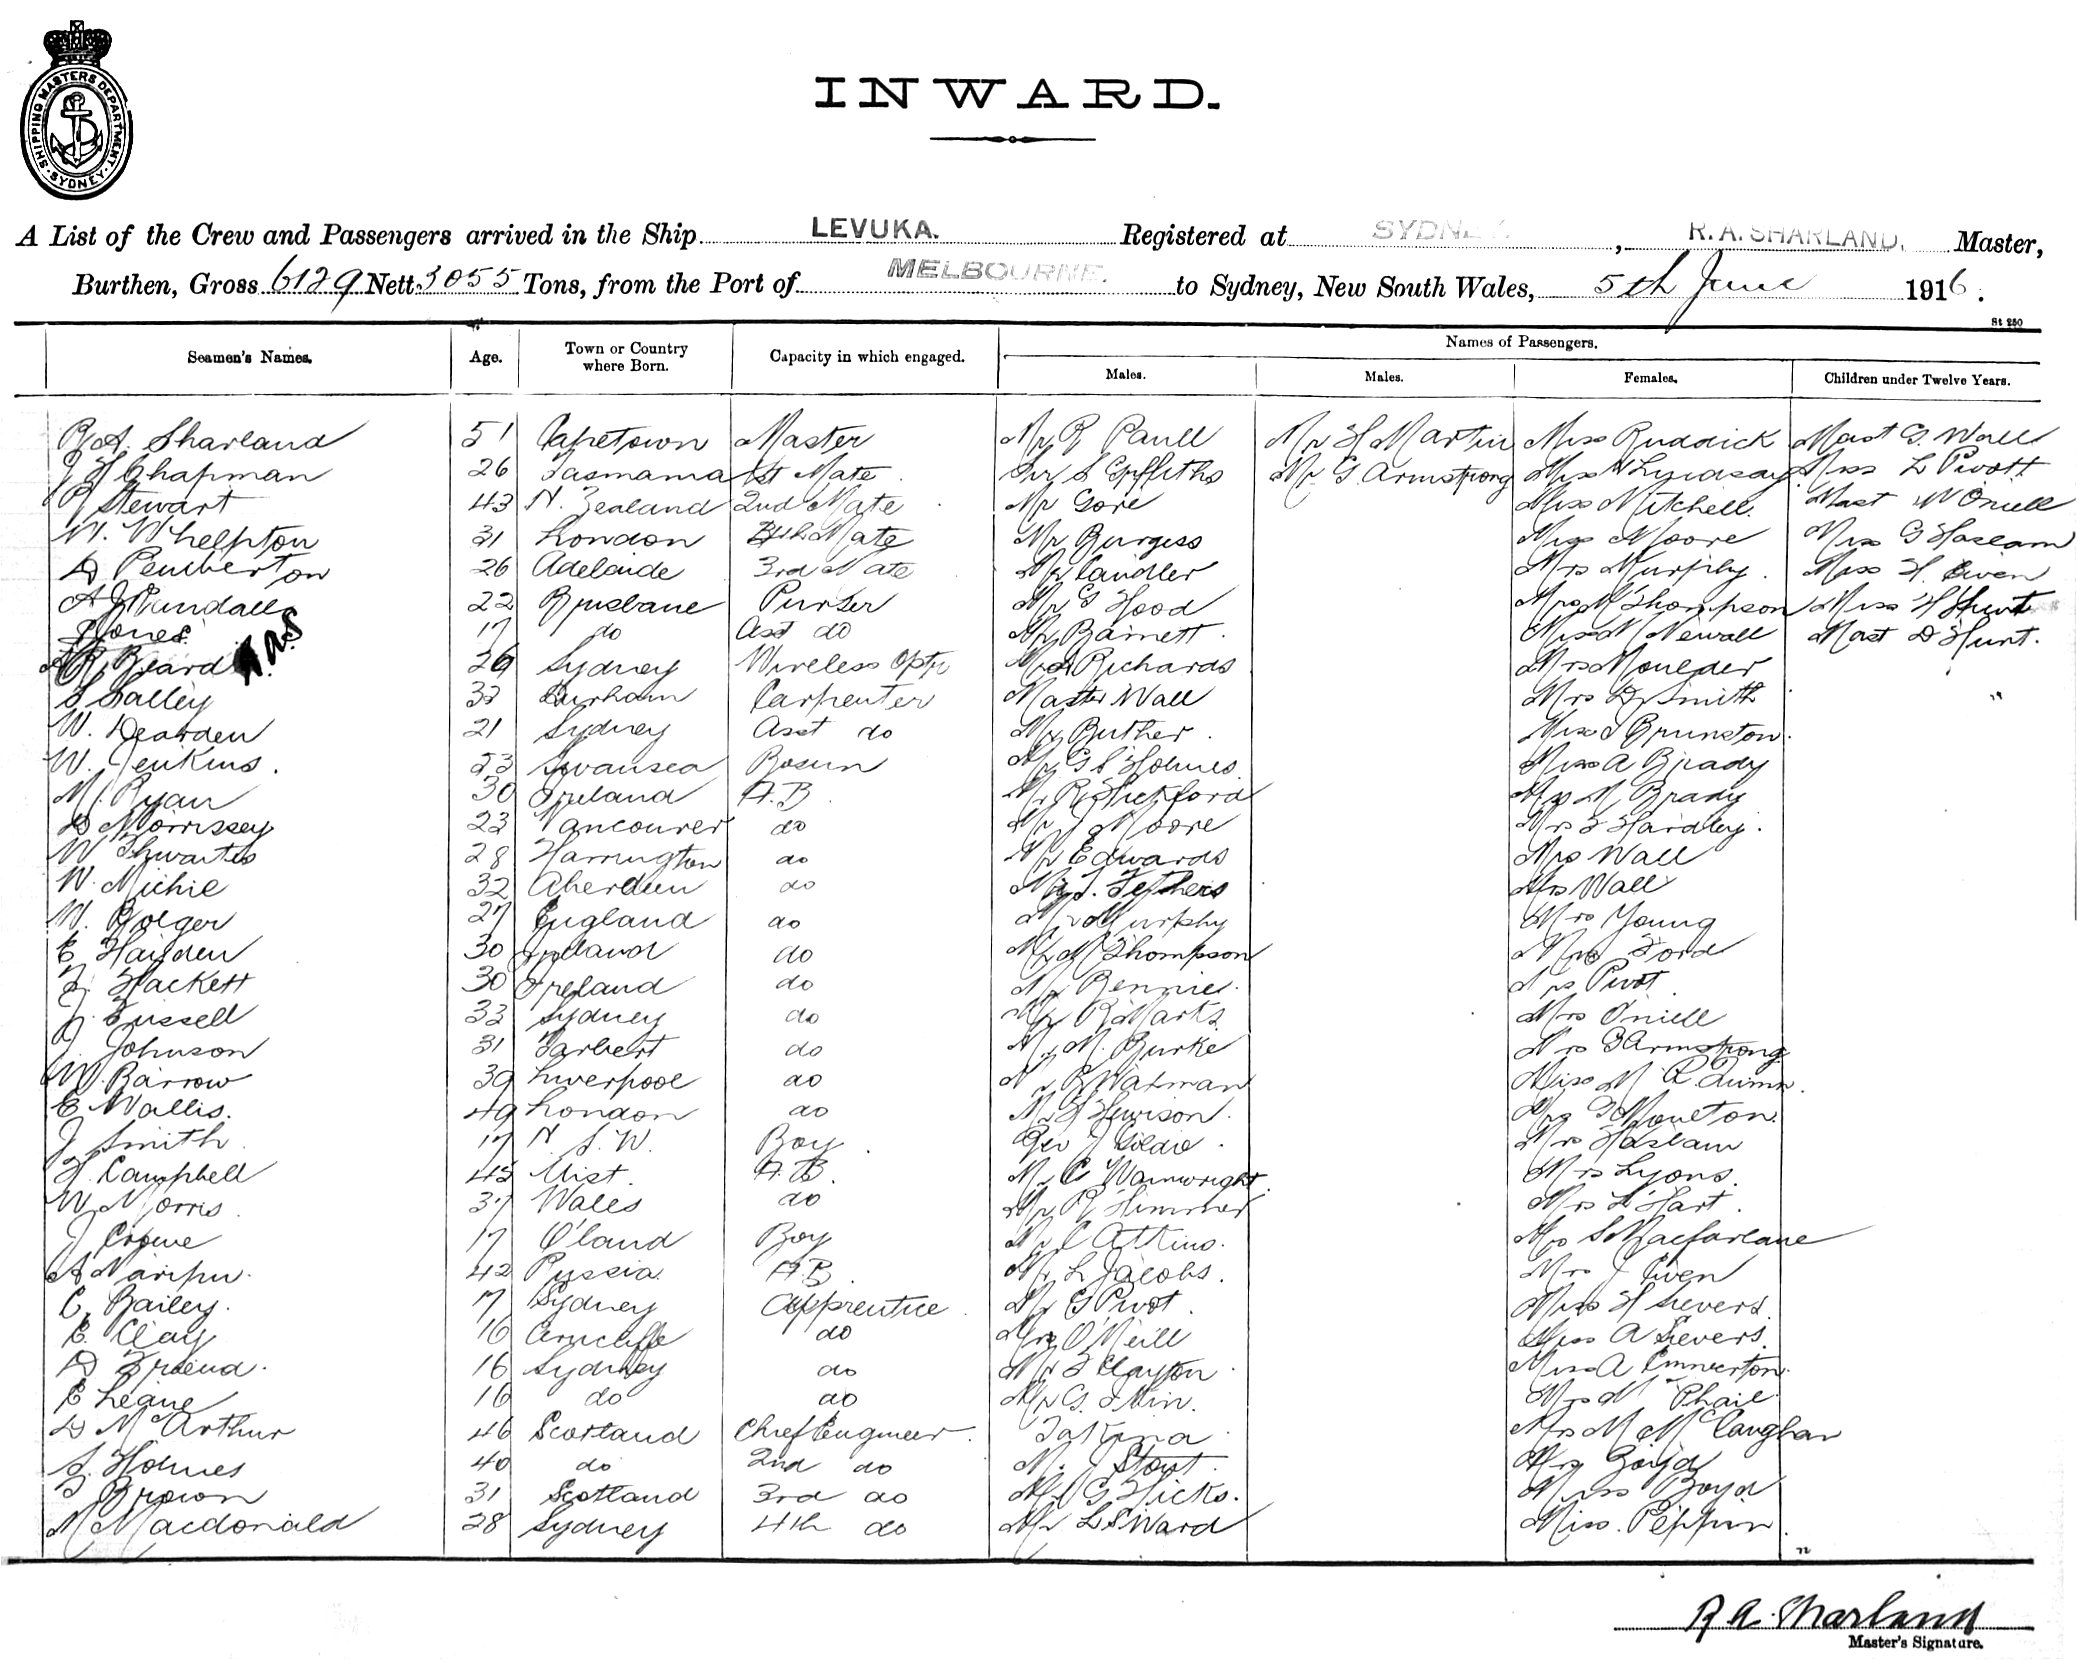 SHIPPING MASTERS DEPARTMENT
SYDNEY
INWARD.
A List of the Crew and Passengers arrived in the Ship LEVUKA. Registered at SYDNEY, R. A. SHARLAND. Master,
Burthen, Gross 6129 Nett 3055 Tons, from the Port of MELBOURNE. to Sydney, New South Wales, 5th June 1916.
St 250
Seamen's Names. Age. Town or Country where Born. Capacity in which engaged. Names of Passengers.
Males. Males. Females. Children under Twelve Years.
R.A. Sharland 51 Capetown Master Mr R Paull Mr H Martin Miss Ruddick Mast G. Wall
J H Chapman 26 Tasmania 1st Mate Sir S Griffiths Mr G Armstrong Miss Lyndsay Miss L Pivott
R Stewart 43 N. Zealand 2nd Mate Mr Gore Miss Mitchell Mast W Oniell
W. Whelpton 31 London 4th Mate Mr Burgess Miss Moore Miss G Haslam
D Pemberton 26 Adelaide 3rd Mate Mr Candler Mrs Murphy. Miss H. Ewen
A J Rundall 22 Brisbane Purser Mr G Hood Mrs M Thompson Miss H Hunt
Jones 17 do Asst do Mr Barnett. Miss M Newall Mast D Hunt.
R. Beard 26 Sydney Wireless Optr Richards Mrs Moulder
S Salley 33 Durham Carpenter Master Wall Mrs D Smith
W. Dearden 21 Sydney Asst do Mr Buther. Miss Brunston.
W. Jenkins. 23 Swansea Bosun Mr G S Holmes. Miss A Brady
M. Ryan 30 Ireland A.B. Mr R Shickford M Brady
D Morrissey 23 Vancouver do Mr J Moore Mrs F Hardley.
W Thwaites 28 Harrington do Mr Edwards Mrs Wall
W. Michie 32 Aberdeen do Mr J. Fethers Mrs Wall
W. Bolger 27 England do Mr Murphy Mrs Young
E Hayden 30 Ireland do Mr M Thompson Mrs Ford
Hackett 30 Ireland do Mr Rennie. Mrs Pivot
J. Fussell 33 Sydney do Mr R Marks Mrs Oniell
J. Johnson 31 Tarbert do Mr M. Burke Mrs G Armstrong
W. Barrow 39 Liverpool do Mr R Watman Miss M. Quinn.
E Wallis. 49 London do Mr Hewison. Mrs G Moulton.
J Smith 17 N. S. W. Boy. Geo J Goldie. Mrs Haslam
H. Campbell 45 Uist. A.B. Mr C Wainwright. Mrs Lyons.
W. Morris. 37 Wales do Mr R Himmer Mrs L Hart.
J Coyne 17 Q'land Boy Mr C Attkins. Mrs S Macfarlane
A 42 Russia. A.B. Mr L Jacobs. Mrs J Ewen
C. Bailey. 17 Sydney Apprentice Mr G Pivot. Miss H Sievers.
E. Clay 16 Arncliffe do Mr O'Neill Miss A Sievers.
D Friend. 16 Sydney do Mr F Clayton Miss A Emmerton.
E Leane 16 do do Mr G. Min. Mrs Mc Phail
D McArthur 46 Scotland Chief Engineer. Mrs M McCaughan
Holmes 40 do 2nd do M. J Stout. Mrs Boyd
Brown 31 Scotland 3rd do Mr G Hicks. Miss Boyd
M Macdonald 28 Sydney 4th do Mr L S Ward Miss. Peppin.
R A. Sharland
Master's Signature.